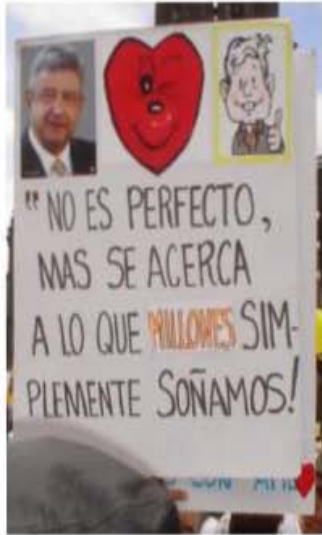 "NO ES PERFECTO,
MAS SE ACERCA
A LO QUE MILLONES SIM-
PLEMENTE SOÑAMOS!
CON